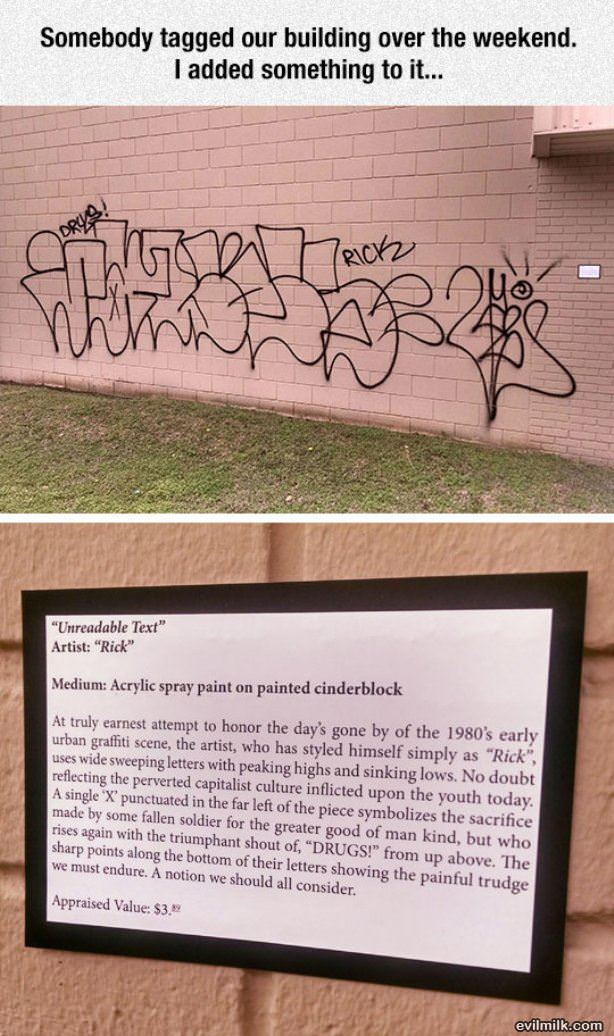 Somebody tagged our building over the weekend.
I added something to it...
DRUGS!
RICK
X
"Unreadable Text"
Artist: "Rick"
Medium: Acrylic spray paint on painted cinderblock
At truly earnest attempt to honor the day's gone by of the 1980's early
urban graffiti scene, the artist, who has styled himself simply as "Rick",
uses wide sweeping letters with peaking highs and sinking lows. No doubt
reflecting the perverted capitalist culture inflicted upon the youth today.
A single 'X' punctuated in the far left of the piece symbolizes the sacrifice
made by some fallen soldier for the greater good of man kind, but who
rises again with the triumphant shout of, "DRUGS!" from up above. The
sharp points along the bottom of their letters showing the painful trudge
we must endure. A notion we should all consider.
Appraised Value: $3.89
evilmilk.com